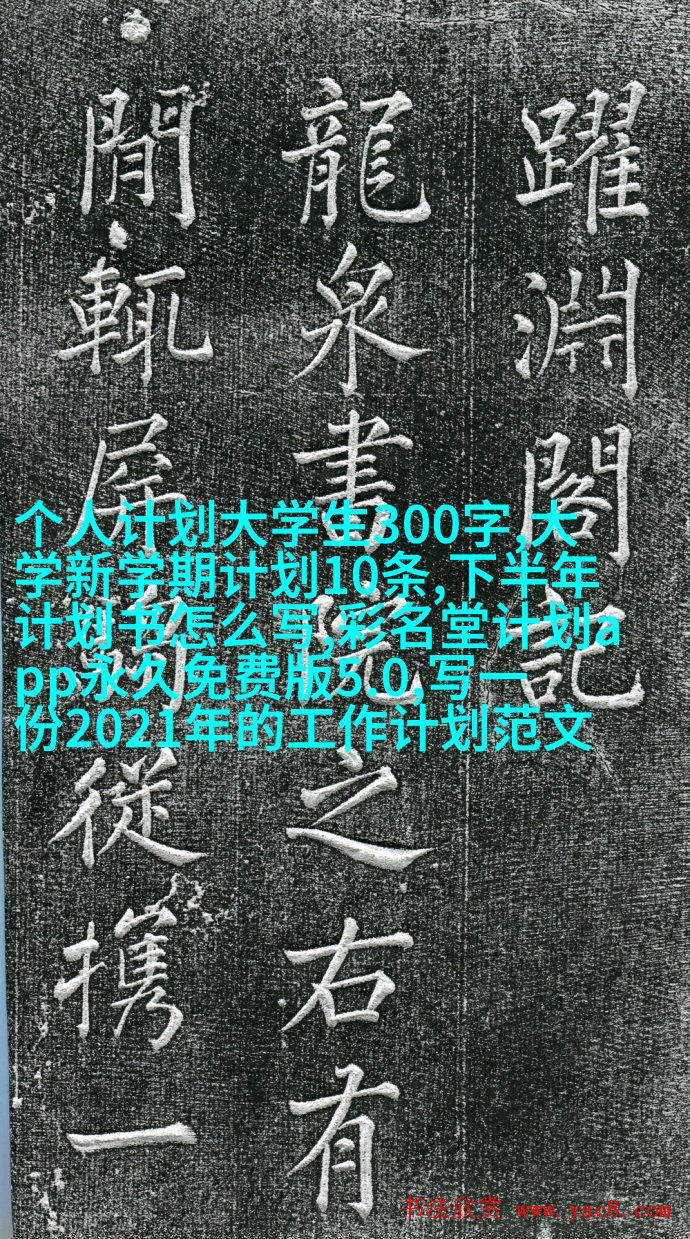 躍淵閣記
龍泉書院之右有
閒輒屏從攜一
个人计划大学生300字,大
学新学期计划10条,下半年
计划书怎么写,彩名堂计划a
pp永久免费版5.0,写一
份2021年的工作计划范文
书法欣赏 www.yac8.com